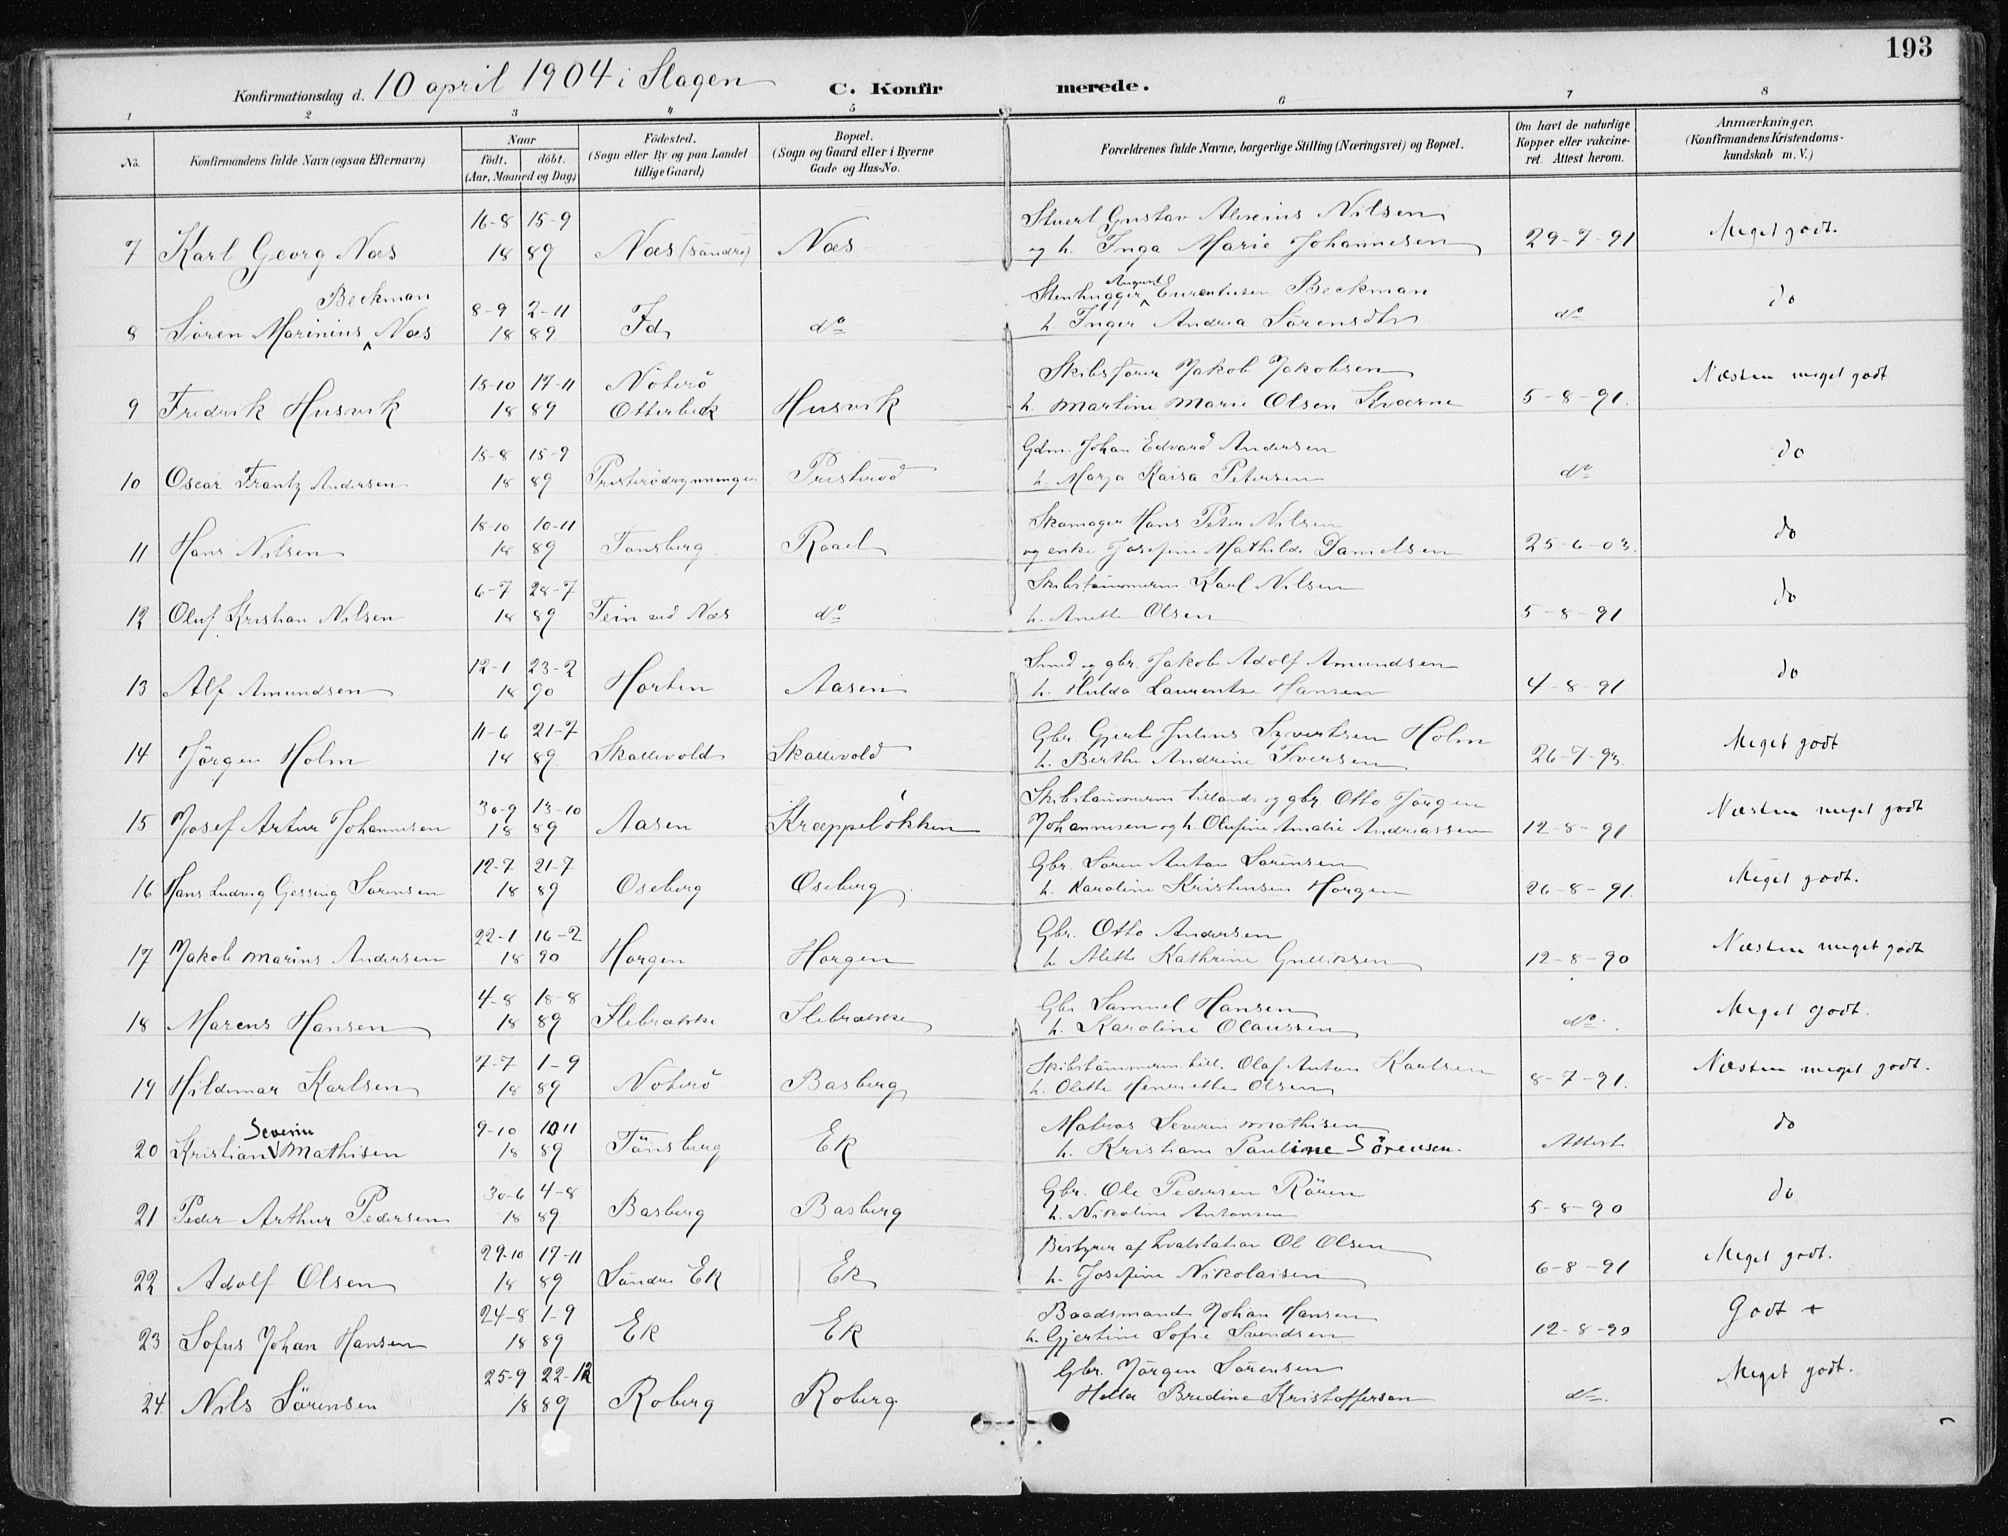 193
Konfirmationsdag d. 10 april 1904 i Slagen C. Konfir merede.
1 2 3 4 5 6 7 8
No. Konfirmandens fulde Navn (ogsaa Efternavn) Naar født. døbt. (Aar, Maaned og Dag) Fødested. (Sogn eller By og paa Landet tillige Gaard) Bopæl. (Sogn og Gaard eller i Byerne Gade og Hus-No. Forældrenes fulde Navne, borgerlige Stilling (Næringsvei) og Bopæl. Om havt de naturlige Kopper eller vakcineret. Attest herom. Anmærkninger. (Konfirmandens Kristendomskundskab m. V.)
16-8 15-9 Stuert Gustav Nilsen
7 Karl Georg Næs 18 89 Næs (søndre) Næs og h. Inga Marie Johannesen 29-7-91 Meget godt.
Beckman 8-9 2-11 Stenhugger August Beckman
8 Søren Marinius Næs 18 89 Id do h. Inger Andrea Sørensdtr do do
15-10 17-11 Nöterö Skibsfører Jakob Jakobsen
9 Fredrik Husvik 18 89 Otterbeck Husvik h. Martine Marie Olsen Kværne 5-8-91. Næsten meget godt
15-8 15-9 Gdm. Johan Edvard Andersen
10 Oscar Frantz Andersen 18 89 Presterödrynningen Presteröd h. Marja Kaisa Petersen do do
18-10 10-11 Skomager Hans Peter Nilsen
11 Hans Nilsen 18 89 Tønsberg Raael og enke Josefine Mathilde Danielsen 25-6-03. do
6-7 28-7 Skibstömmerm Karl Nilsen
12 Oluf Kristian Nilsen 18 89 Tein ved Næs do h. Anette Olsen 5-8-91 do
12-1 23-2 Smed og gbr. Jakob Adolf Amundsen
13 Alf Amundsen 18 90 Horten Aasen h. Hulda Laurentse Hansen 4-8-91 do
11-6 21-7 Gbr. Gjert Julius Syvertsen Holm
14 Jørgen Holm 18 89 Skallevold Skallevold h. Berthe Andrine Iversen 26-7-93. Meget godt
30-9 13-10 Skibstömmerm tillands og gbr Otto Jørgen
15 Josef Artur Johannesen 18 89 Aasen Kræppeløkken Johannesen og h. Olufine Amalie Andreassen 12-8-91 Næsten meget godt
12-7 21-7 Gbr. Søren Anton Sørensen
16 Hans Ludvig Gessing Sørensen 18 89 Oseberg Oseberg h. Karoline Kristensen Horgen 26-8-91. Meget godt.
22-1 16-2 Gbr. Otto Andersen
17 Jakob Marius Andersen 18 90 Horgen Horgen h. Alette Kathrine Gulliksen 12-8-90 Næsten meget godt
4-8 18-8 Gbr. Samuel Hansen
18 Marens Hansen 18 89 Ilebrække Ilebrække h. Karoline Olaussen do Meget godt.
7-7 1-9 Skibstömmerm. till. Olaf Anton Karlsen
19 Hildemar Karlsen 18 89 Nöterö Basberg h. Olette Henriette Olsen 8-7-91. Næsten meget godt.
Severin 9-10 10 11 Matros Severin Mathisen
20 Kristian Mathisen 18 89 Tönsberg Ek h. Kristiane Pauline Sörensen. Attest do
30-6 4-8 Gbr. Ole Pedersen Rören
21 Peder Arthur Pedersen 18 89 Basberg Basberg h. Nikoline Antonsen 5-8-90 do
29-10 17-11 Bestyrer af hvalstation Ol. Olsen
22 Adolf Olsen 18 89 Søndre Ek Ek h. Josefine Nikolaisen 6-8-91 Meget godt.
24-8 1-9 Baadsmand Johan Hansen
23 Sofus Johan Hansen 18 89 Ek Ek h. Gjertine Sofie Svendsen 12-8-90 Godt +
25-9 22-12 Gbr. Jørgen Sørensen
24. Nils Sørensen 18 89 Roberg Roberg Hella Bredine Kristoffersen do Meget godt.